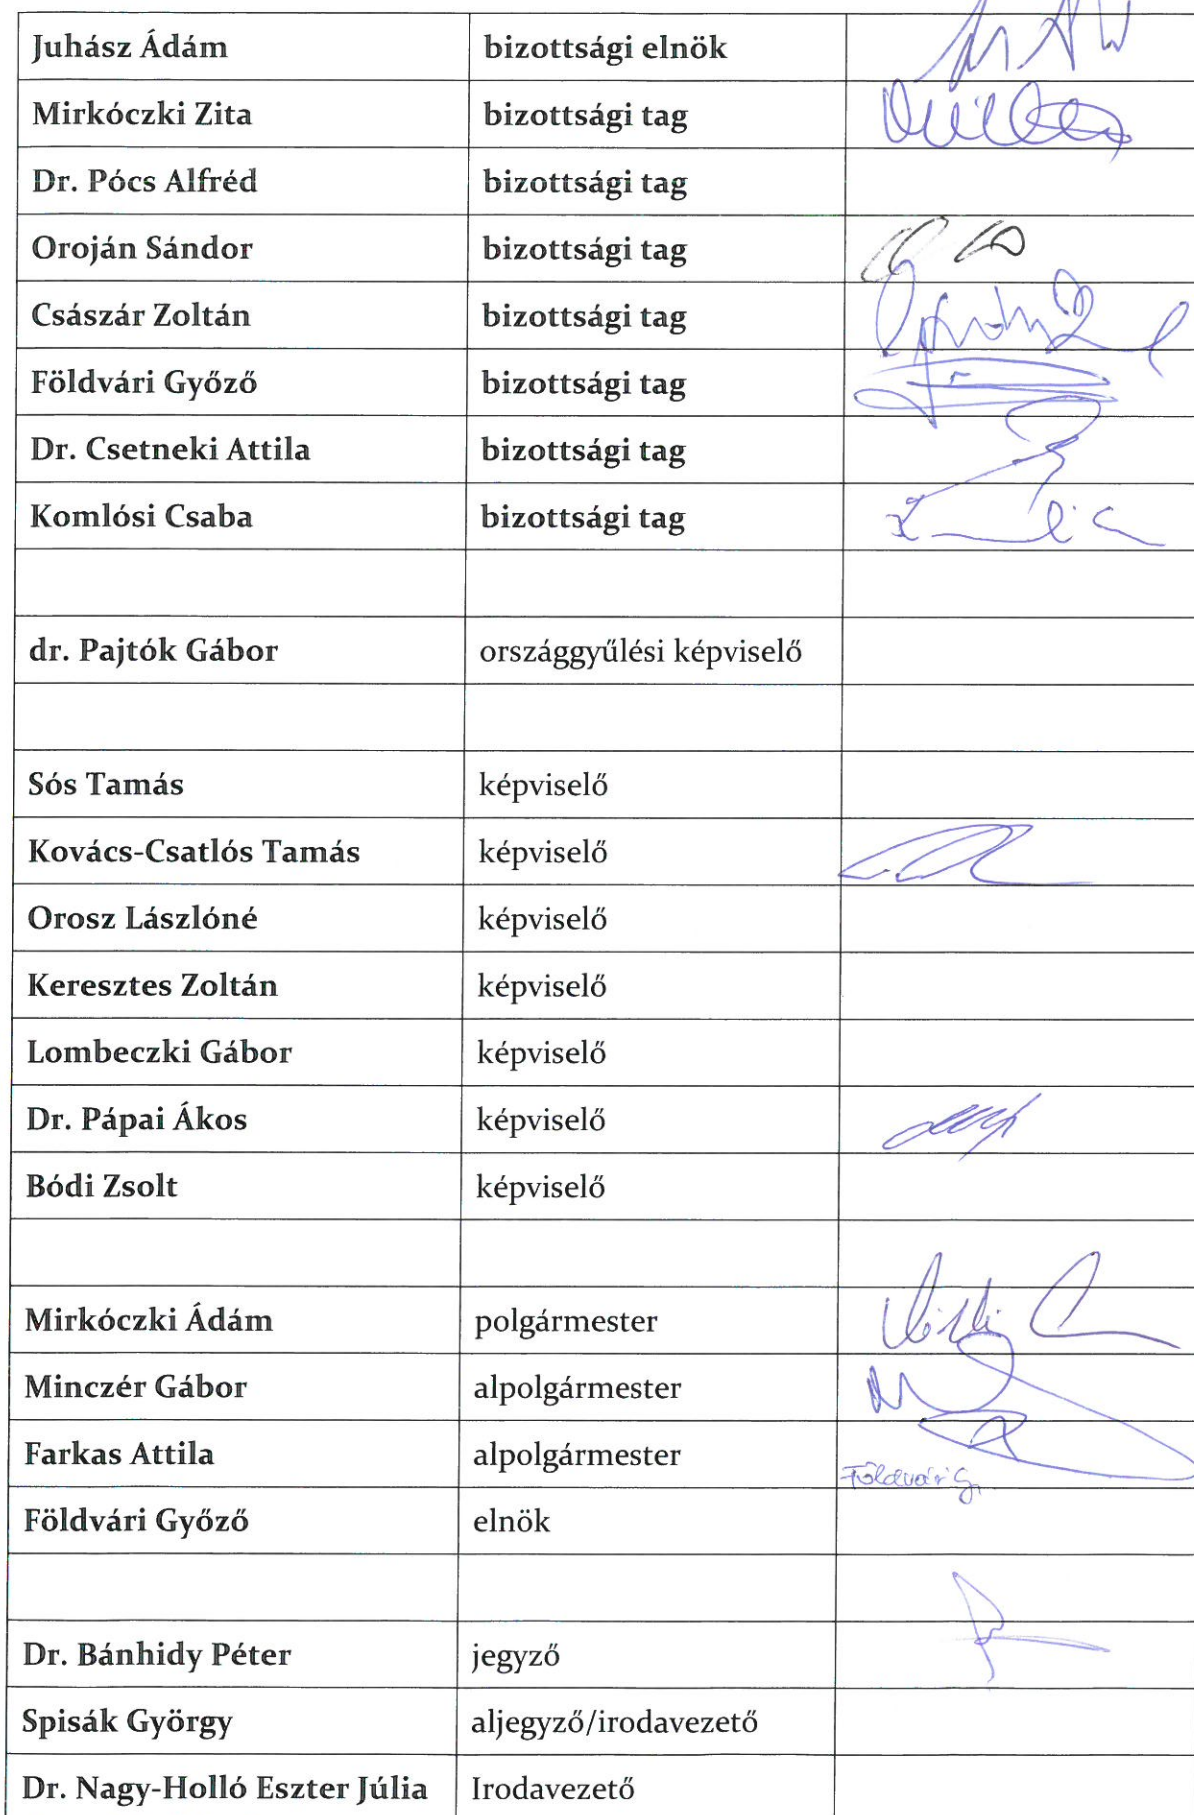 Juhász Ádám bizottsági elnök
Mirkóczki Zita bizottsági tag
Dr. Pócs Alfréd bizottsági tag
Oroján Sándor bizottsági tag
Császár Zoltán bizottsági tag
Földvári Győző bizottsági tag
Dr. Csetneki Attila bizottsági tag
Komlósi Csaba bizottsági tag
dr. Pajtók Gábor országgyűlési képviselő
Sós Tamás képviselő
Kovács-Csatlós Tamás képviselő
Orosz Lászlóné képviselő
Keresztes Zoltán képviselő
Lombeczki Gábor képviselő
Dr. Pápai Ákos képviselő
Bódi Zsolt képviselő
Mirkóczki Ádám polgármester
Minczér Gábor alpolgármester
Farkas Attila alpolgármester
Földvári Győző elnök
Dr. Bánhidy Péter jegyző
Spisák György aljegyző/irodavezető
Dr. Nagy-Holló Eszter Júlia Irodavezető